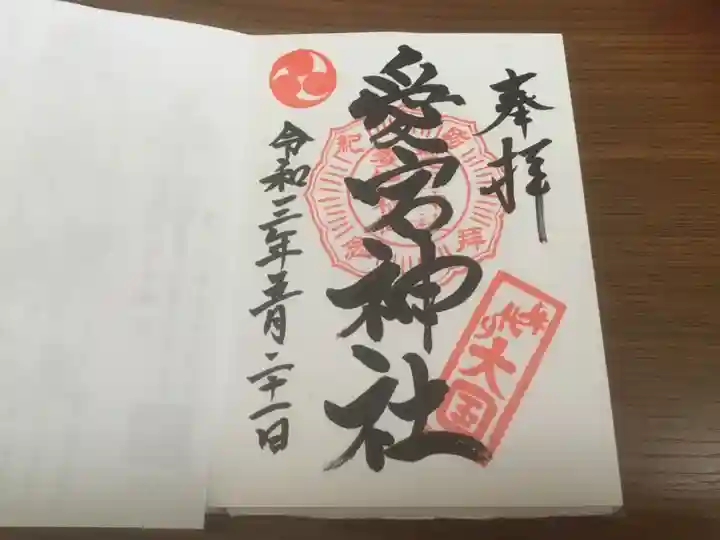 奉拝
愛宕神社
參拝
紀念
大国
令和三年五月二十一日